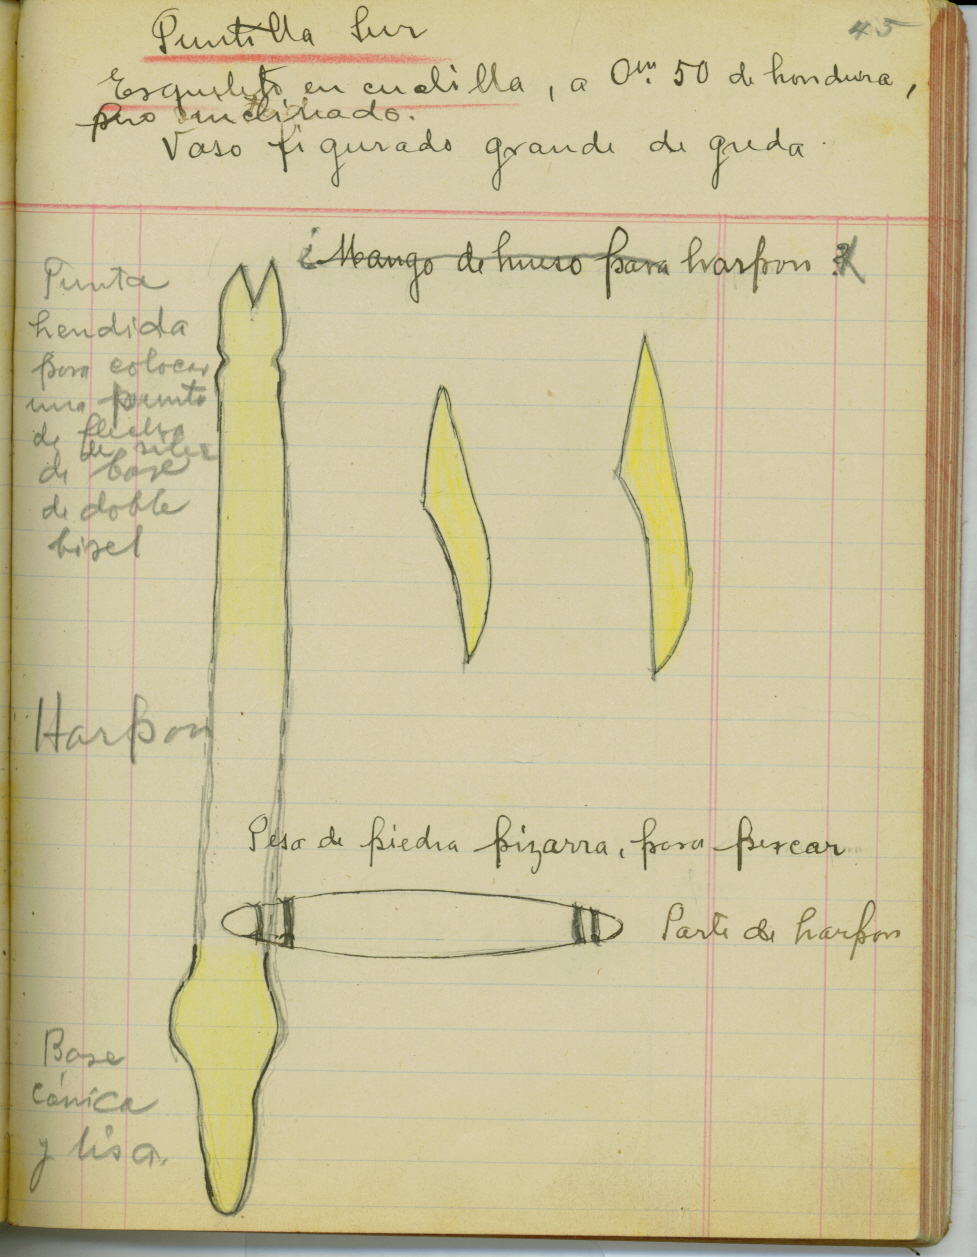 45
Puntilla Sur
Esqueleto en cuclilla, a 0m. 50 de hondura,
pero inclinado.
Vaso figurado grande de greda
¿Mango de hueso para harpon?
Punta
hendida
para colocar
una punta
de flecha
de silex
de base
de doble
bisel
Harpon
Pesa de piedra pizarra, para pescar
Parte de harpon
Base
cónica
y lisa.